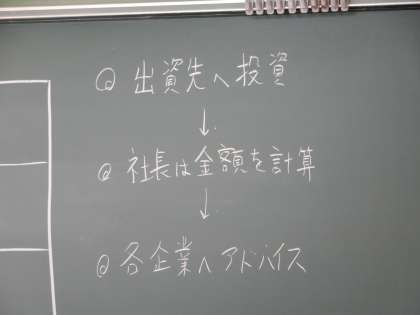 ◎ 出資先へ投資
↓
◎ 社長は金額を計算
↓
◎ 各企業へアドバイス